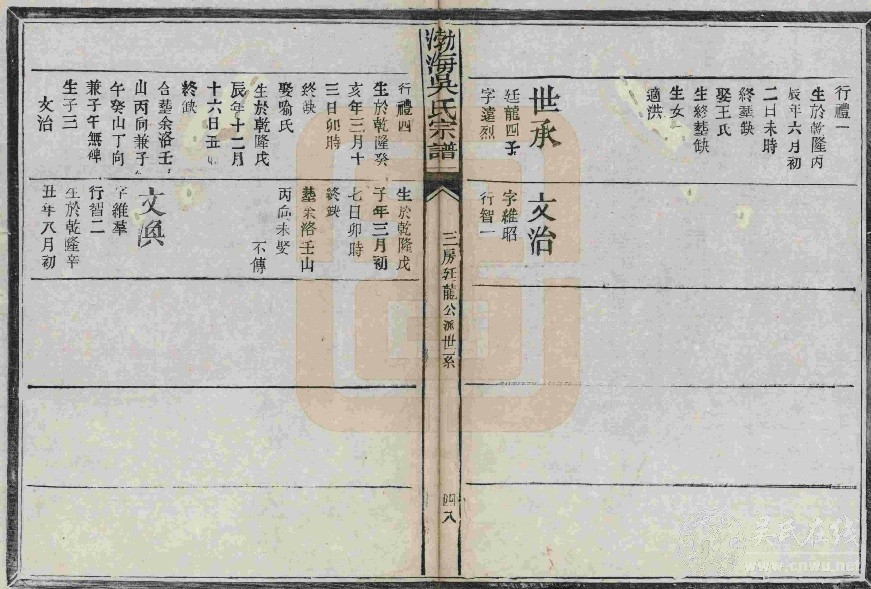 行禮一
生於乾隆丙
辰年六月初
二日未時
娶王氏
終墓缺
生終墓缺
生女一
適洪
世承
廷龍四子
字遠烈
文治
字維昭
行智一
渤海吳氏宗譜
三房廷龍公派世系
四八
行禮四
生於乾隆癸
亥年三月十
三日卯時
終缺
娶喻氏
生於乾隆戊
辰年十二月
十六日五
終缺
合墓余洛壬
山丙向兼子
午癸山丁向
兼子午無碑
生子三
文治
生於乾隆戊
子年三月初
七日卯時
終缺
墓余洛壬山
丙向未娶
不傳
文
字維羣
行智二
生於乾隆辛
丑年八月初
吳氏在线
www.cnwu.net